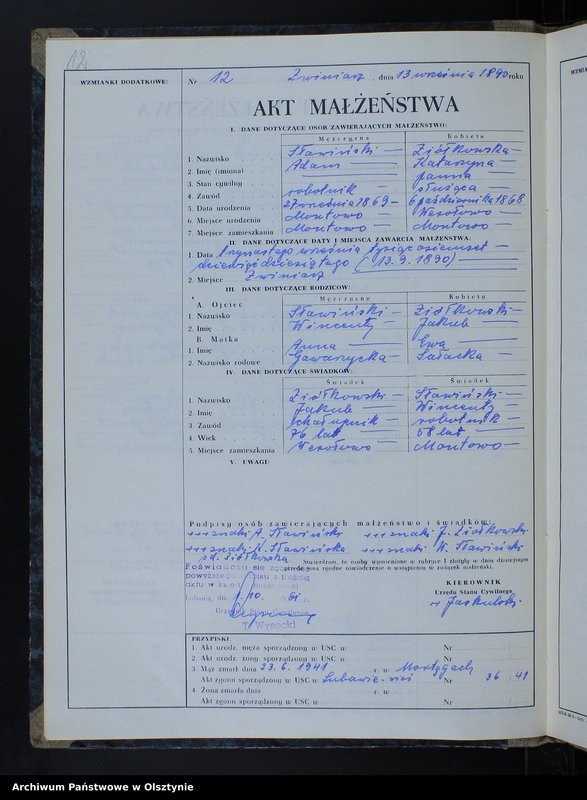 12
WZMIANKI DODATKOWE:
Nr 12 Zwiniarz, dnia 13 września 1890 roku
AKT MAŁŻEŃSTWA
I. DANE DOTYCZĄCE OSÓB ZAWIERAJĄCYCH MAŁŻEŃSTWO:
Mężczyzna Kobieta
1. Nazwisko Sławiński — Ziółkowska —
2. Imię (imiona) Adam Katarzyna —
3. Stan cywilny — panna —
4. Zawód robotnik — służąca —
5. Data urodzenia 27 września 1869 — 6 października 1868
6. Miejsce urodzenia Montowo — Wesołowo —
7. Miejsce zamieszkania Montowo — Montowo —
II. DANE DOTYCZĄCE DATY I MIEJSCA ZAWARCIA MAŁŻEŃSTWA:
1. Data trzynastego września tysiąc osiemset —
dziewięćdziesiątego (13.9.1890) —
2. Miejsce Zwiniarz
III. DANE DOTYCZĄCE RODZICÓW:
Mężczyzny Kobiety
A. Ojciec
1. Nazwisko Sławiński — Ziółkowski —
2. Imię Wincenty — Jakub —
B. Matka
1. Imię Anna — Ewa —
2. Nazwisko rodowe Gawarzycka — Sałacka —
IV. DANE DOTYCZĄCE ŚWIADKÓW:
Świadek Świadek
1. Nazwisko Ziółkowski — Sławiński —
2. Imię Jakub — Wincenty —
3. Zawód chałupnik — robotnik —
4. Wiek 76 lat 58 lat —
5. Miejsce zamieszkania Wesołowo — Montowo —
V. UWAGI:
Podpisy osób zawierających małżeństwo i świadków:
+++ znaki A. Sławiński +++ znaki J. Ziółkowski
+++ znaki K. Sławińska +++ znaki W. Sławiński
z d. Ziółkowska
Stwierdzam, że osoby wymienione w rubryce I złożyły w dniu dzisiejszym
przede mną zgodne oświadczenie o wstąpieniu w związek małżeński.
Poświadcza się zgodność
powyższego odpisu z treścią
aktu w księdze
Lubawa, dn. 1.10. 1961 r.
Urzędu Stanu Cywilnego
T. Wysocki
KIEROWNIK
Urzędu Stanu Cywilnego
Jaskulski
PRZYPISKI:
1. Akt urodz. męża sporządzony w USC w Nr /
2. Akt urodz. żony sporządzony w USC w Nr /
3. Mąż zmarł dnia 23.6.1941 r. w Mortęgach
Akt zgonu sporządzony w USC w Lubawie-wieś Nr 36 / 41
4. Żona zmarła dnia r. w
Akt zgonu sporządzony w USC w Nr /
Archiwum Państwowe w Olsztynie